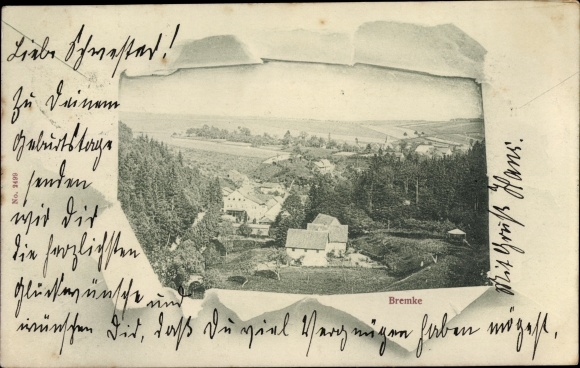 Liebe Schwester!
Zu Deinem
Geburtstage
senden
wir Dir
die herzlichsten
Glückwünsche und
wünschen Dir, daß Du viel Vergnügen haben mögest.
Mit Gruß Hans.
Bremke
No. 2499